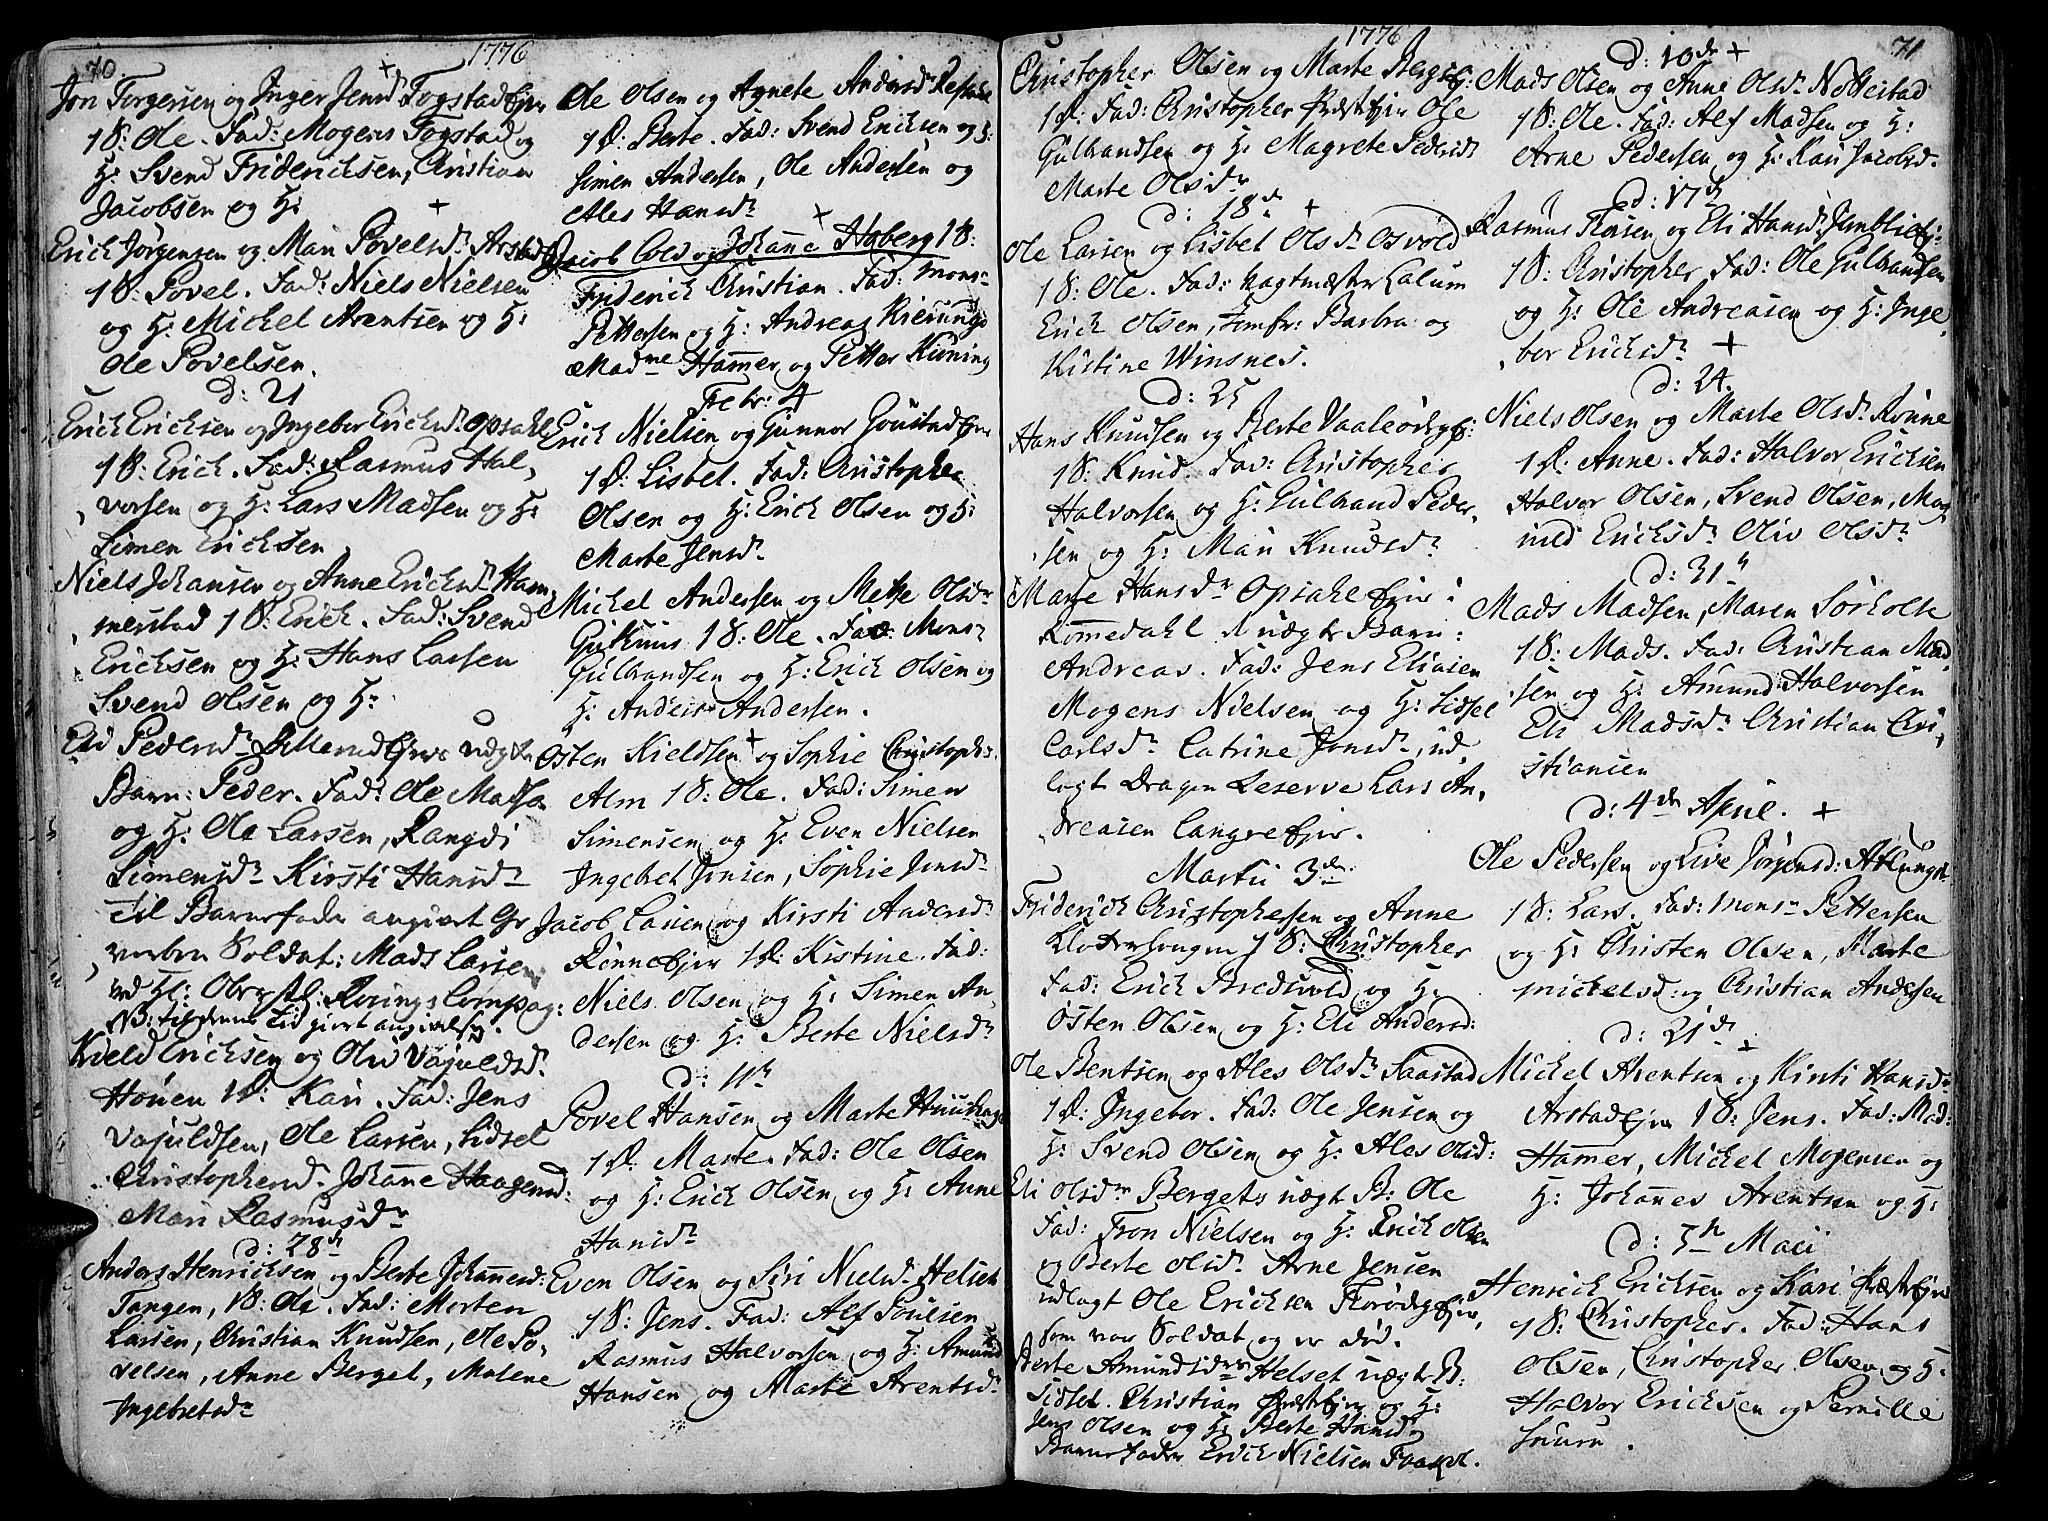 70
1776
Jon Torgersen og Inger Jensd. Togstad Ejer
1 S: Ole. Fad: Mogens Togstad og
H: Svend Friderichsen, Christian
Jacobsen og H:
Erich Jørgensen og Mari Povelsd. Arstad
1 S: Povel. Fad: Niels Nielsen
og H: Michel Arentsen og H:
Ole Povelsen.
d: 21
Erich Erichsen og Ingebor Erichsd. Opsahl
1 S: Erich. Fad: Rasmus Hal,
vorsen og H: Lars Madsen og H:
Simen Erichsen
Niels Johansen og Anne Erichsd. Ham,
merstad 1 S: Erich. Fad: Svend
Erichsen og H: Hans Larsen
Svend Olsen og H:
Eli Pedersd. uægte
Barn: Peder. Fad: Ole Madsen
og H: Ole Larsen, Rangdi
Simensd. Kirsti Hansd.
Til Barnefader angivet Ge
vorben Soldat: Mads Larsen
ved H: Oberstl: Rørings Compag:
NB: til denne tid giort angivelse.
Kield Erichsen og Oliv Vajuldsd.
Høuen 1 D: Kari. Fad: Jens
Vajuldsen, Ole Larsen, Sidsel
Christophersd. Johanne Haagensd:
Mari Rasmusd.
d: 28
Anders Henrichsen og Berte Johannesd:
Tangen, 1 S: Ole. Fad: Morten
Larsen, Christian Knudsen, Ole Po,
velsen, Anne Berget, Malene
Ingebretsd.
Ole Olsen og Agnete Andersd.
1 D: Berte. Fad: Svend Erichsen og H:
Simen Andersen, Ole Andersen og
Ales Hansd.
Jacob Cold og Johanne Hoberg 1 S:
Friderich Christian. Fad: Mons.
Pettersen og H: Andreas
Madme Hammer og Petter
Febr: 4
Erich Nielsen og Gunnor Goustad Ejer
1 D: Lisbet. Fad: Christopher
Olsen og H: Erich Olsen og H:
Marte Jensd.
Michel Andersen og Mette Olsd.
1 S: Ole. Fad: Mons
Gulbrandsen og H: Erich Olsen og
H: Anders Andersen.
Osten Kieldsen og Sophie Christophs.
Alm 1 S: Ole. Fad: Simen
Simensen og H: Even Nielsen
Ingebret Jensen, Sophie Jensd.
Jacob Larsen og Kirsti Andersd.
Rønne Ejer 1 D: Kistine. Fad:
Niels Olsen og H: Simen An,
dersen og H: Berte Nielsd.
d: 11
Povel Hansen og Marte
1 D: Marte. Fad: Ole Olsen
og H: Erich Olsen og H: Anne
Hansd.
Even Olsen og Siri Nielsd. Helset
1 S: Jens. Fad: Alf Poulsen
Rasmus Halvorsen og H: Amund
Hansen og Marte Arentsd.
1776
71
Christopher Olsen og Marte Bergs
1 D: Fad: Christopher Præst Ejer Ole
Gulbrandsen og H: Magrete Pedersd.
Marte Olsd.
d: 18
Ole Larsen og Lisbet Olsd. Osvold
1 S: Ole. Fad: Vagtmester Lalum
Erich Olsen, Jomfr: Barbra og
Kistine Winsnes.
d: 25
Hans Knudsen og Berte
1 S: Knud. Fad: Christopher
Halvorsen og H: Gulbrand Peder,
sen og H: Mari Knudsd.
Marte Hansd. Opsahl Ejer i
Rommedahl 1 uægte Barn:
Andreas. Fad: Jens Eliasen
Mogens Nielsen og H: Sidsel
Carlsd. Catrine Jonsd. ud,
lagt Dragon Reserve Lars An,
dreasen Langre Ejer.
Martii 3de
Friderich Christophersen og Anne
1 S: Christopher
Fad: Erich Bredsvold og H:
Osten Olsen og H: Eli Andersd:
Ole Bentsen og Ales Olsd. Saastad
1 D: Ingebor. Fad: Ole Jensen og
H: Svend Olsen og H: Ales Olsd:
Eli Olsd. Bergets uægt B: Ole
Fad: Tron Nielsen og H: Erich Olsen
og Berte Olsd. Arne Jensen
udlagt Ole Erichsen
som var Soldat og er død.
Berte Amundsd. Helset uægte B:
Sidsel. Christian Præst Ejer og H:
Jens Olsen og H: Berte Hansd.
Barnefader Erich Nielsen
d: 10de
Mads Olsen og Anne Olsd. Nottestad
1 S: Ole. Fad: Alf Madsen og H:
Arne Pedersen og H: Kari Jacobsd.
d: 17de
Rasmus og Eli Hansd. Jemblie Ej:
1 S: Christopher Fad: Ole Gulbrandsen
og H: Ole Andreasen og H: Inge,
bor Erichsd.
d: 24.
Niels Olsen og Marte Olsd. Rønne
1 D: Anne. Fad: Halvor Erichsen
Halvor Olsen, Svend Olsen, Mag,
nild Erichsd. Oliv Olsd.
d: 31
Mads Madsen, Maren Sørholte
1 S: Mads. Fad: Christian Mad,
sen og H: Amund Halvorsen
Eli Madsd. Christian Chri,
stiansen
d: 4de April.
Ole Pedersen og Live Jørgensd:
1 S: Lars. Fad: Mons. Pettersen
og H: Christen Olsen, Marte
Mickelsd: og Christian Andersen
d: 21de
Michel Arentsen og Kirsti Hansd.
Arstad Ejer 1 S: Jens. Fad: Mad:
Hammer, Michel Mogensen og
H: Johannes Arentsen og H:
d: 5 Maei
Henrich Erichsen og Kari Præst Ejer
1 S: Christopher. Fad: Hans
Olsen, Christopher Olsen og H:
Halvor Erichsen og Pernille